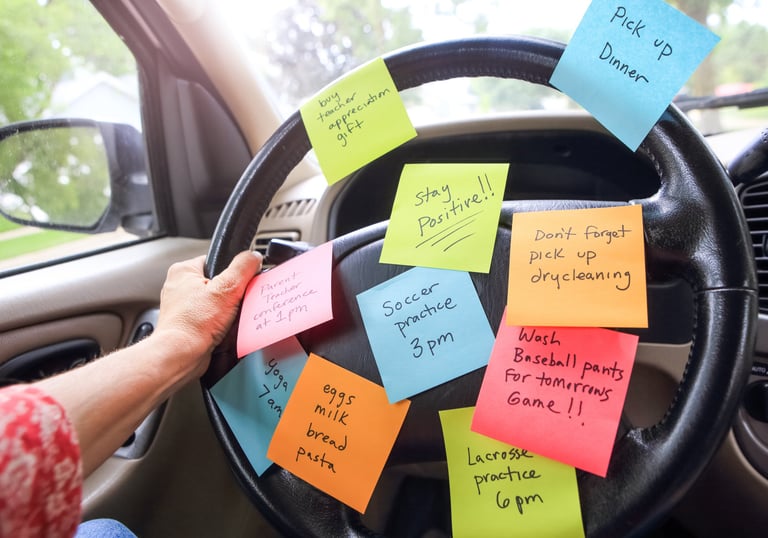 Pick up
Dinner
buy
teacher
appreciation
gift
Stay
Positive!!
Don't forget
pick up
drycleaning
Parent
Teacher
conference
at 1pm
Soccer
practice
3pm
Wash
Baseball pants
For tomorrows
Game!!
yoga
7am
eggs
milk
bread
pasta
Lacrosse
practice
6pm
AUTO